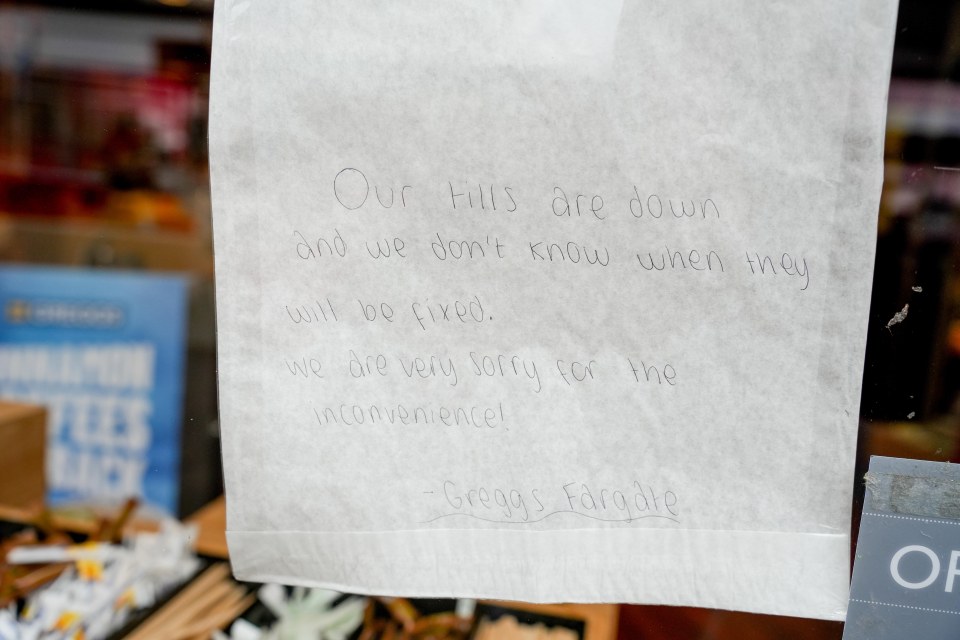 Our tills are down
and we don't know when they
will be fixed.
we are very sorry for the
inconvenience!
- Greggs Fargate
OP